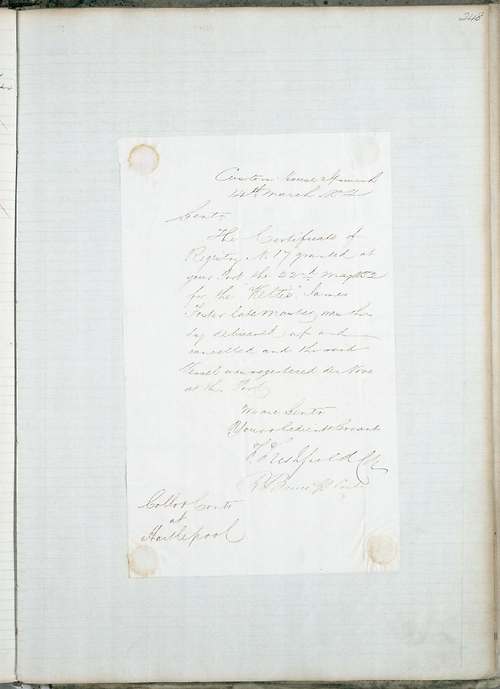 248
Custom House Ipswich
14th March 185
Gents
The Certificate of
Registry No 17 granted at
your Port the 22nd May 1852
for the "Kelsie" James
Foster late Master, was this
day delivered up and
cancelled and the said
Vessel was registered de Novo
at this Port
We are Gents
Your obedient Servants
Collor & Contr
at
Hartlepool